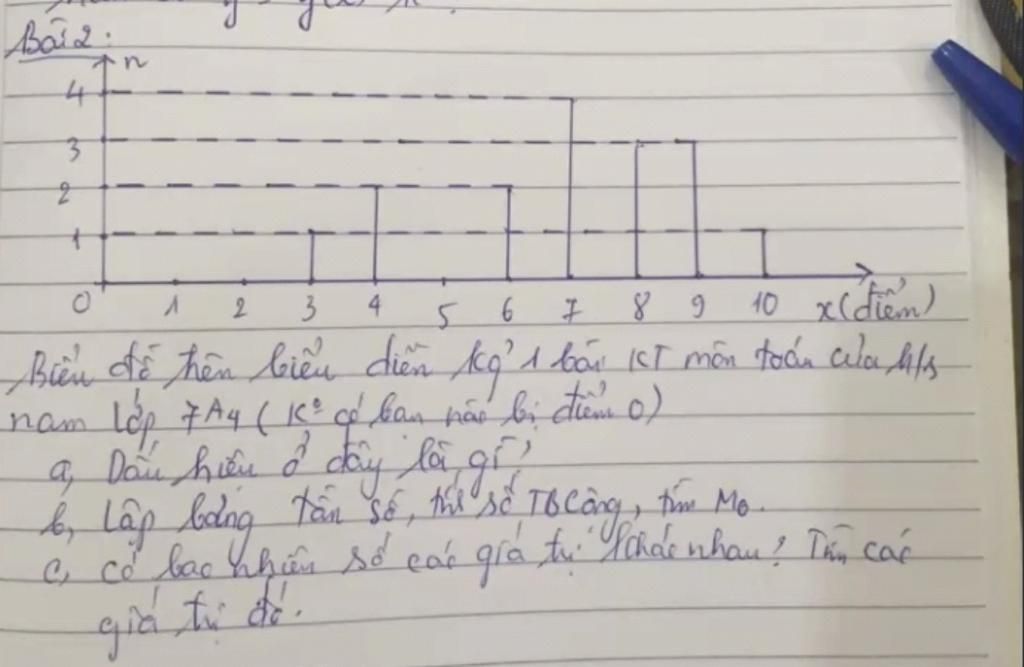 Bài 2:
n
4
3
2
1
0 1 2 3 4 5 6 7 8 9 10 x (điểm)
Biểu đồ trên biểu diễn kq' 1 bài KT môn toán của h/s
nam lớp 7A4 (K° có bạn nào bị điểm 0)
a, Dấu hiệu ở đây là gì?
b, Lập bảng tần số, tính số TBCộng, tìm M₀.
c, có bao nhiêu số các giá trị khác nhau? Tìm các
giá trị đó.